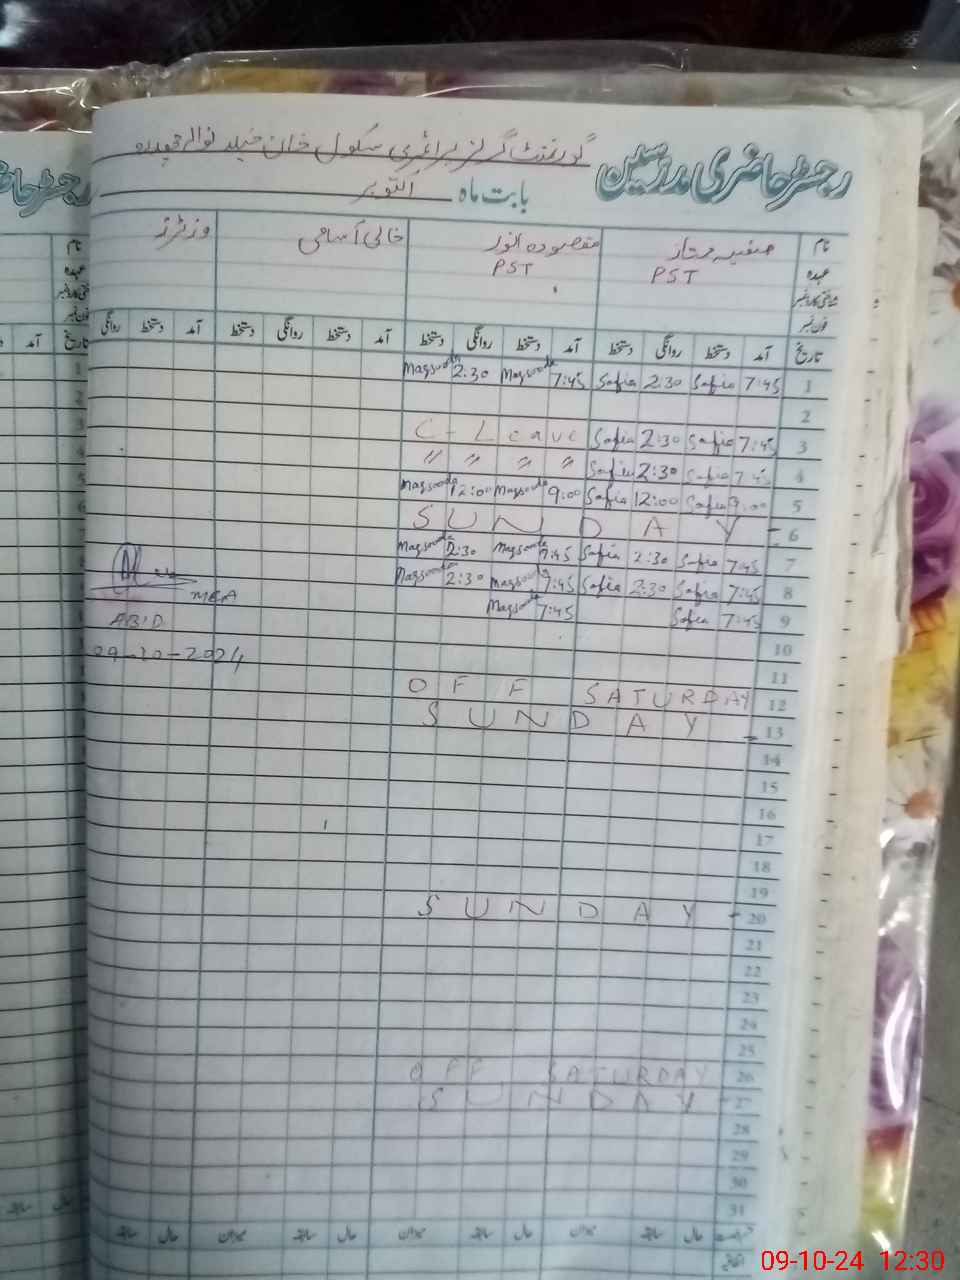 رجسٹر حاضری مدرسین گورنمنٹ گرلز پرائمری سکول خان خیلہ
بابت ماہ اکتوبر
نام صفیہ ممتاز مقصودہ انور خالی آسامی وزٹرز
عہدہ PST PST
شناختی کارڈ نمبر
فون نمبر
تاریخ آمد دستخط روانگی دستخط آمد دستخط روانگی دستخط آمد دستخط روانگی دستخط آمد دستخط روانگی
1 7:45 Safia 2:30 Safia 7:45 Maqsooda 2:30 Maqsooda
2
3 7:45 Safia 2:30 Safia C-Leave
4 7:45 Safia 2:30 Safia " " " "
5 9:00 Safia 12:00 Safia 9:00 Maqsooda 12:00 Maqsooda
6 SUNDAY
7 7:45 Safia 2:30 Safia 7:45 Maqsooda 2:30 Maqsooda
8 7:45 Safia 2:30 Safia 7:45 Maqsooda 2:30 Maqsooda
MEA
9 7:45 Safia 7:45 Maqsooda
ABID
10
09-10-2024
11
12 OFF SATURDAY
13 SUNDAY
14
15
16
17
18
19
20 SUNDAY
21
22
23
24
25
26 OFF SATURDAY
27 SUNDAY
28
29
30
31
حال سابقہ میزان حال سابقہ میزان حال سابقہ میزان حال سابقہ
رجسٹر حاضر
نام
عہدہ
شناختی کارڈ نمبر
فون نمبر
تاریخ آمد
1
2
3
4
5
6
حال سابقہ
09-10-24 12:30